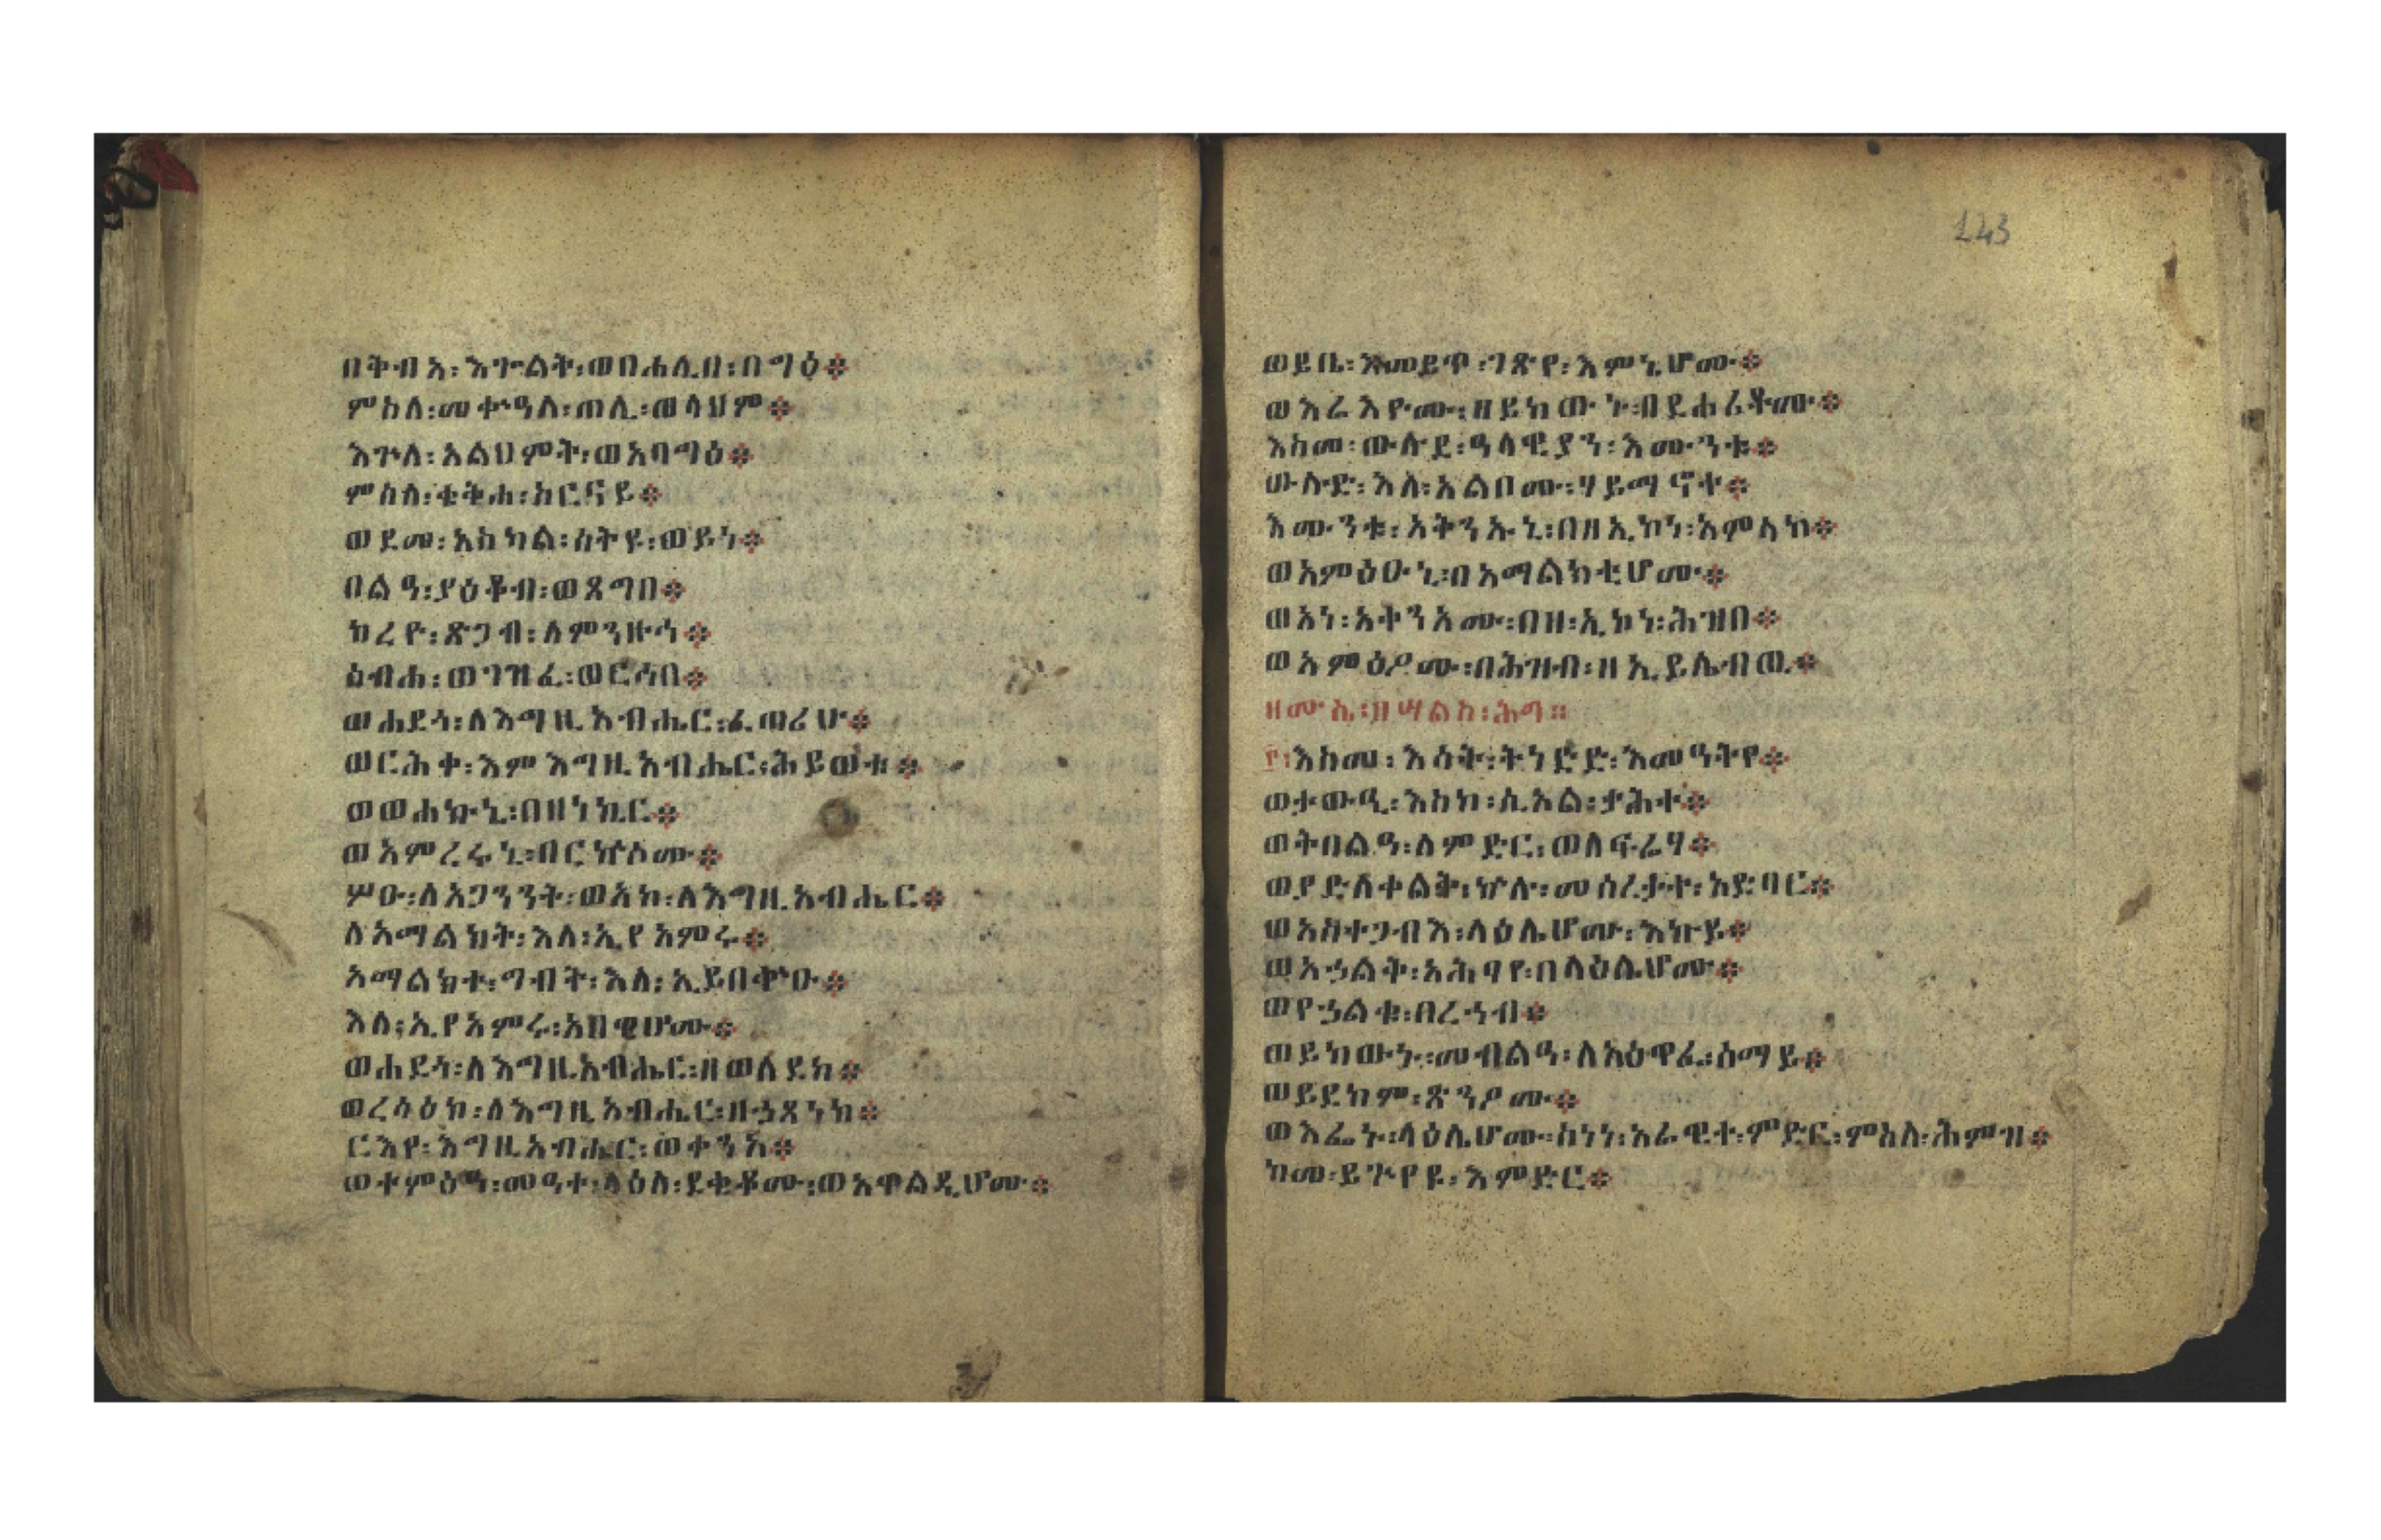 በቅብአ፡እጐልት፡ወበሐሊበ፡በግዕ፨
ምስለ፡መቍዓለ፡ጠሊ፡ወላህም፨
እጕለ፡አልህምት፡ወአባግዕ፨
ምስለ፡ቄቅሐ፡ከርናይ፨
ወደመ፡አስካል፡ስትዩ፡ወይነ፨
በልዓ፡ያዕቆብ፡ወጸግበ፨
ከረዮ፡ጽጋብ፡ለምንዙኅ፨
ዕብሐ፡ወገዝፈ፡ወርኅበ፨
ወሐደጎ፡ለእግዚአብሔር፡ፈጣሪሁ፨
ወርሕቀ፡እምእግዚአብሔር፡ሕይወቱ፨
ወወሐኩኒ፡በዘነኪር፨
ወአምረሩኒ፡በርኵሶሙ፨
ሦዑ፡ለአጋንንት፡ወአከ፡ለእግዚአብሔር፨
ለአማልክት፡እለ፡ኢየአምሩ፨
አማልክተ፡ግብት፡እለ፡ኢይበቍዑ፨
እለ፡ኢየአምሩ፡አበዊሆሙ፨
ወሐደጎ፡ለእግዚአብሔር፡ዘወለደከ፨
ወረሳዕከ፡ለእግዚአብሔር፡ዘኃጸነከ፨
ርእየ፡እግዚአብሔር፡ወቀንአ፨
ወተምዕዓ፡መዓተ፡ላዕለ፡ደቂቆሙ፡ወአዋልዲሆሙ፨
123
ወይቤ፡እመይጥ፡ገጽየ፡እምኒሆሙ፨
ወእሬእዮሙ፡ዘይከውኑ፡በደሐሪቶሙ፨
እስመ፡ውሉደ፡ዓላዊያን፡እሙንቱ፨
ውሉድ፡እለ፡አልቦሙ፡ሃይማኖተ፨
እሙንቱ፡አቅንኡኒ፡በዘኢኮነ፡አምላከ፨
ወአምዕዑኒ፡በአማልክቲሆሙ፨
ወአነ፡አቀንአሙ፡በዘ፡ኢኮነ፡ሕዝበ፨
ወአምዕዖሙ፡በሕዝብ፡ዘኢይሌብዉ፨
ዘሙኤ፡ዘሣልስ፡ሕግ።
፫፡እስመ፡እሳት፡ትነድድ፡እመዓትየ፨
ወታውዒ፡እስከ፡ሲኦል፡ታሕተ፨
ወትበልዓ፡ለምድር፡ወለፍሬሃ፨
ወያድለቀልቅ፡ኵሉ፡መሰረታተ፡አድባር፨
ወአስተጋብእ፡ላዕሌሆሙ፡እኩይ፨
ወአኃልቅ፡አሕፃየ፡በላዕሌሆሙ፨
ወየኃልቁ፡በረኅብ፨
ወይከውኑ፡መብልዓ፡ለአዕዋፈ፡ሰማይ፨
ወይደክም፡ጽንዖሙ፨
ወእፌኑ፡ላዕሌሆሙ፡ስነነ፡አራዊተ፡ምድር፡ምስለ፡ሕምዝ፨
ከመ፡ይጕየዩ፡እምድር፨